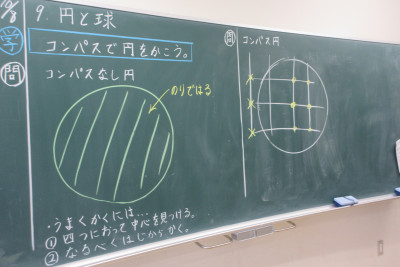 9. 円と球
学
コンパスで円をかこう。
問
コンパスなし円
のりではる
・うまくかくには…
① 四つにおって中心を見つける。
② なるべくはじからかく。
問
コンパス円